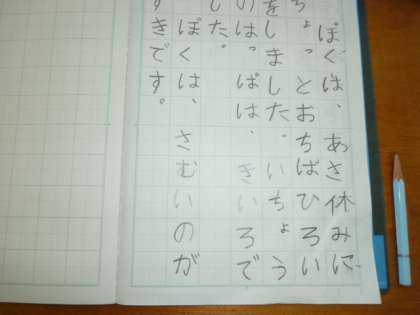 ぼくは、あさ休みに
ちょっとおちばひろい
をしました。いちょう
のはっぱは、きいろで
した。
ぼくは、さむいのが
すきです。